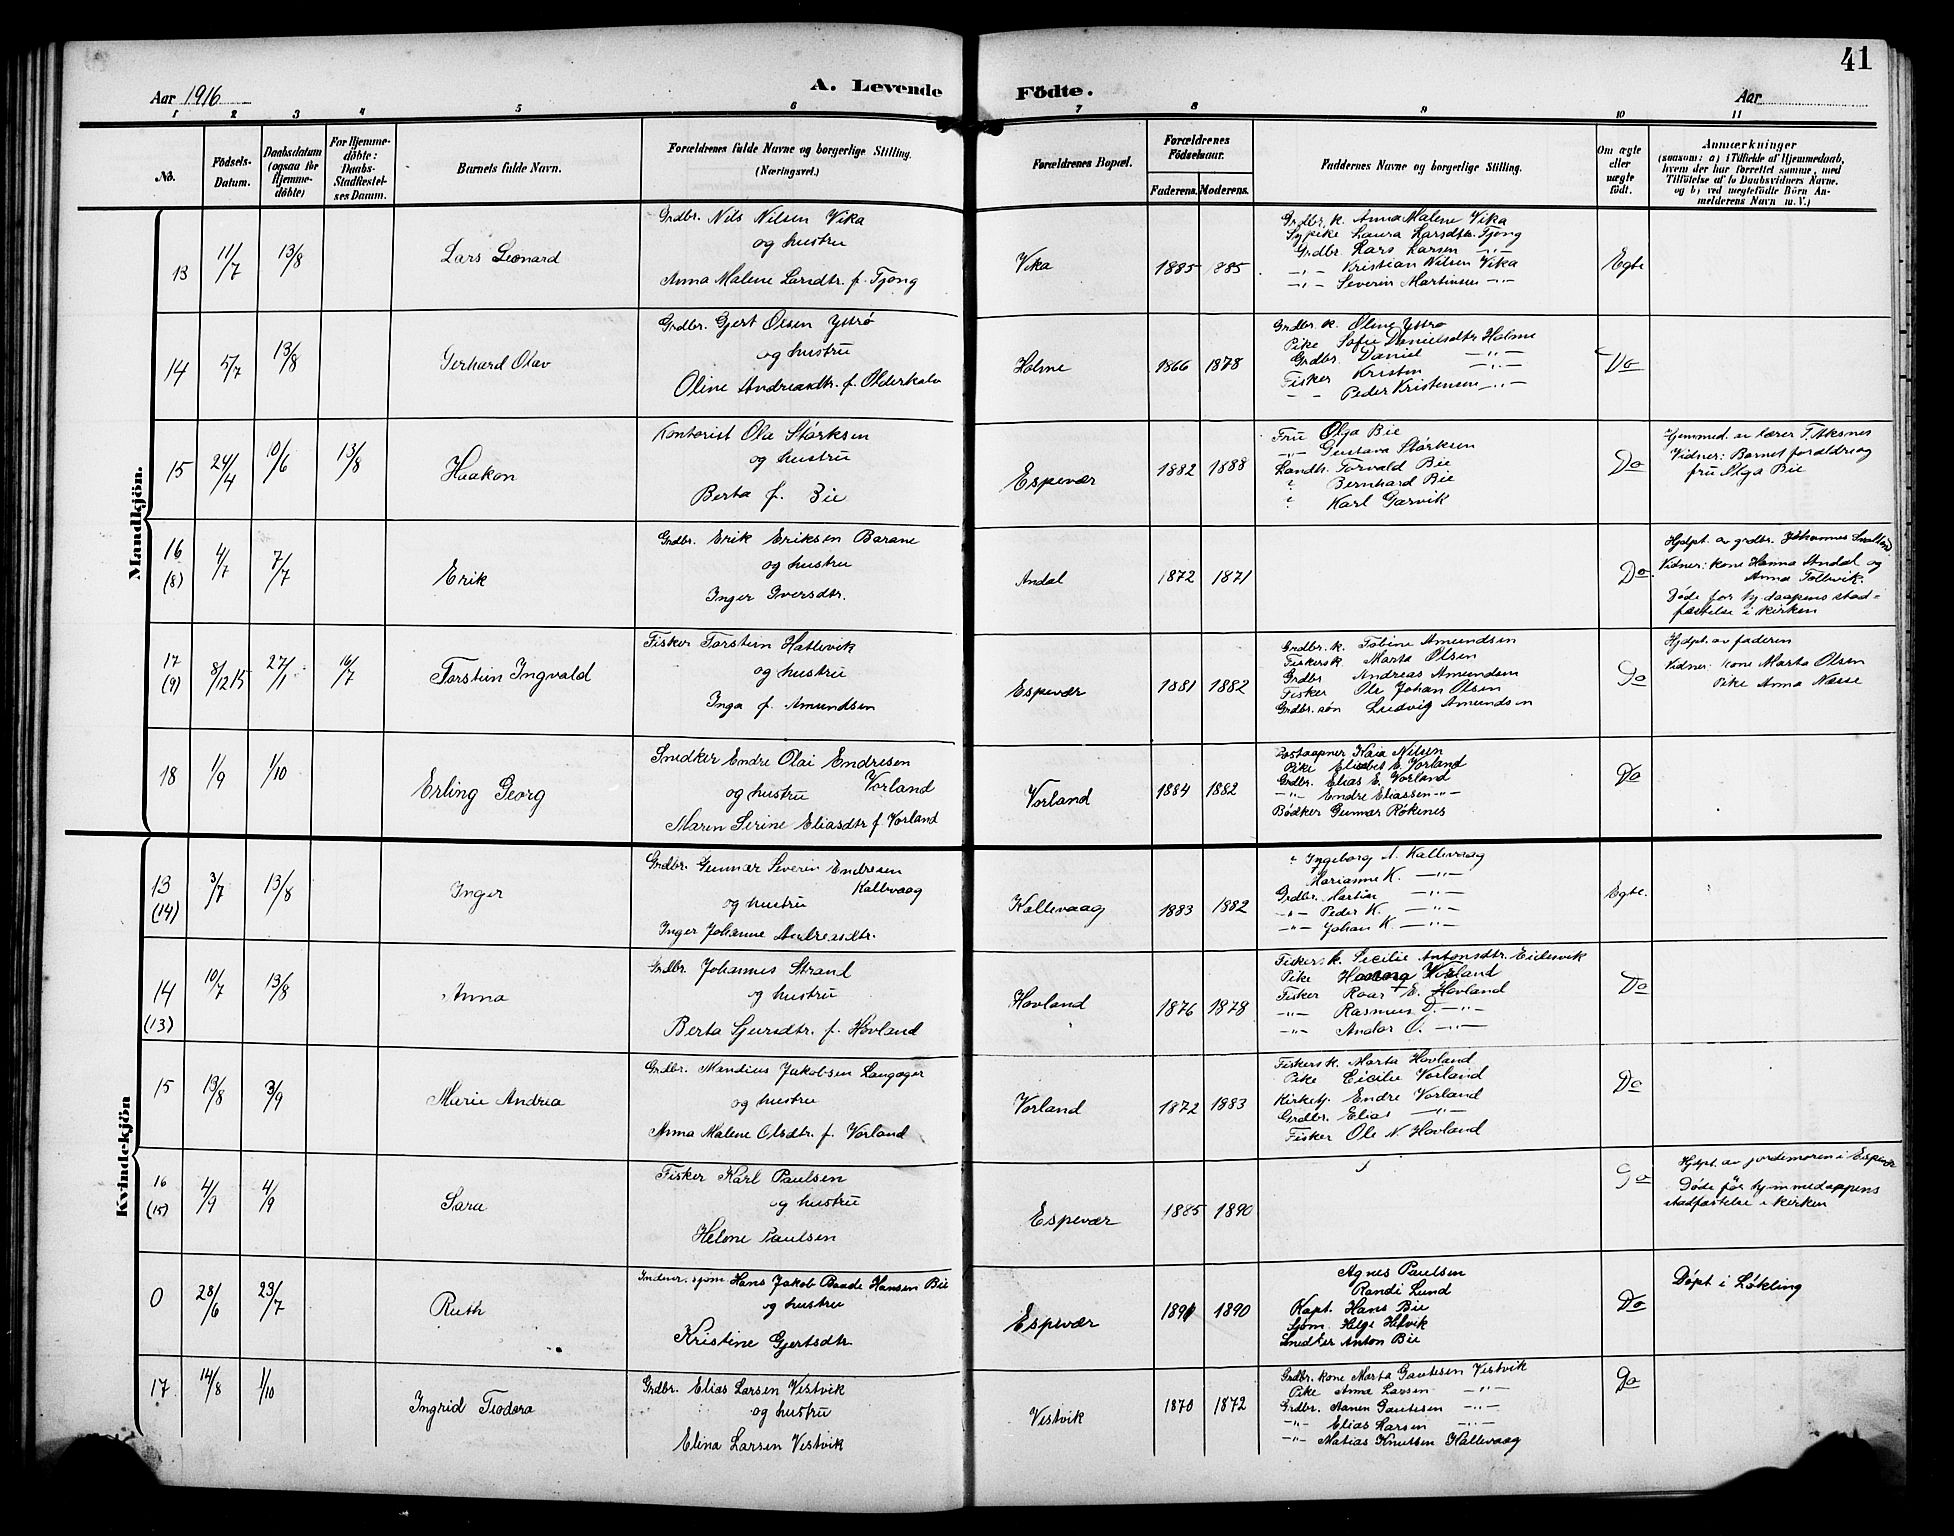 41
Aar 1916
A. Levende Födte.
Aar
1 2 3 4 5 6 7 8 9 10 11
No.
Födsels-
Datum.
Daabsdatum
(ogsaa for
Hjemme-
döbte)
For Hjemme-
döbte:
Daabs-
Stadfæstel-
ses Datum.
Barnets fulde Navn.
Forældrenes fulde Navne og borgerlige Stilling.
(Næringsvei.)
Forældrenes Bopæl.
Forældrenes
Födselsaar.
Faderens.
Moderens.
Faddernes Navne og borgerlige Stilling.
Om ægte
eller
uægte
födt.
Anmærkninger
(saasom: a) i Tilfælde af Hjemmedaab,
hvem der har forrettet samme, med
Tilföielse af to Daabsvidners Navne.
og b) ved uegtefödte Börn An-
melderens Navn m. V.)
Mandkjön.
13
11/7
13/8
Lars Leonard
Grdbr. Nils Nilsen Vika
og hustru
Anna Malene Larsdtr. f. Tjong
Vika
1885
885
Grdbr. k. Anna Malene Vika
Sypike Laura Larsdtr. Tjong
Grdbr. Lars Larsen -"-
-"- Kristian Nilsen Vika
-"- Severin Martinsen -"-
Egte
14
5/7
13/8
Gerhard Olav
Grdbr. Gjert Olsen Ystrø
og hustru
Oline Andreasdtr. f. Olderkalv
Holme
1866
1878
Grdbr. k. Oline Ystrø
Pike Sofie Danielsdtr Holme
Grdbr. Daniel -"-
Fisker Kristen -"-
- - Peder Kristensen -"-
Do
15
24/4
10/6
13/8
Haakon
Kontorist Ola Størksen
og hustru
Berta f. Bie
Espevær
1882
1888
Fru Olga Bie
-"- Gustava Størksen
Landh. Torvald Bie
" Bernhard Bie
" Karl Garvik
Do
Hjemmed. av lærer T. Aksnes
Vidner: Barnet forældre og
fru Olga Bie
16
(8)
4/7
7/7
Erik
Grdbr. Erik Eriksen Barane
og hustru
Inger Iversdtr.
Andal
1872
1871
Do
Hjdpt. av grdbr. Johannes
Vidner: kone Hanna Andal og
Anna Tollevik.
Døde før hj.daapens stad-
fæstelse i kirken
17
(9)
8/12 15
27/1
16/7
Torstein Ingvald
Fisker Torstein Hallevik
og hustru
Inga f. Amundsen
Espevær
1881
1882
Grdbr. k. Tobine Amundsen
Fiskersk. Marta Olsen
Grdbr Andreas Amundsen
Fisker Ole Johan Olsen
Grdbr. søn Ludvig Amundsen
Do
Hjdpt. av faderen
Vidner: kone Marta Olsen
Pike Anna Næsse
18
1/9
1/10
Erling Georg
Snedker Endre Olai Endresen
Vorland
og hustru
Maren Serine Eliasdtr f Vorland
Vorland
1884
1882
Postaapner Kaia Nilsen
Pike Elisabet E. Vorland
Grdbr. Elias E. Vorland
-"- Endre Eliassen -"-
Bødker Gunnar Røkenes
Do
Kvindekjön
13
(14)
3/7
13/8
Inger
Grdbr. Gunnar Severin Endresen
Kallevaag
og hustru
Inger Johanne Andreasdtr.
Kallevaag
1883
1882
" Ingeborg N. Kallevaag
Marianne K. -"-
Grdbr. Martin -"-
-"- Peder K. -"-
-"- Johan K. -"-
Egte.
14
(13)
10/7
13/8
Anna
Grdbr. Johannes Strand
og hustru
Berta Sjursdtr. f. Hovland
Hovland
1876
1878
Fiskersk. Secilie Antonsdtr. Eidesvik
Pike Vorland
Fisker Roar E. Hovland
-"- Rasmus D. -"-
-"- Andor O. -"-
Do
15
13/8
3/9
Marie Andrea
Grdbr. Mandius Jakobsen Langager
og hustru
Anna Malene Olsdtr. f. Vorland
Vorland
1872
1883
Fiskersk. Marta Hovland
Pike Cicilie Vorland
Kirketj. Endre Vorland
Grdbr. Elias -"-
Fisker Ole N. Hovland
Do
16
(15)
4/9
4/9
Sara
Fisker Karl Paulsen
og hustru
Helene Paulsen
Espevær
1885
1890
Do
Hjdpt. av jordemoren i Espevær
Døde før hjemmedaapens
stadfæstelse i kirken
0
28/6
23/7
Ruth
sjøm Hans Jakob Baade Hansen Bie
og hustru
Kristine Gjertsdtr.
Espevær
1891
1890
Agnes Paulsen
Randi Lund
Kapt. Hans Bie
Sjøm. Helge Hilvik
Snedker Anton Bie
Do
Døpt i Løkling
17
14/8
1/10
Ingrid Teodora
Grdbr. Elias Larsen Vestvik
og hustru
Elina Larsen Vestvik
Vestvik
1870
1872
Grdbr. kone Marta Gautesen Vestvik
Pike Anna Larsen -"-
Grdbr. Aanen Gautesen -"-
-"- Elias Larsen -"-
-"- Matias Knutsen Kallevaag
Do